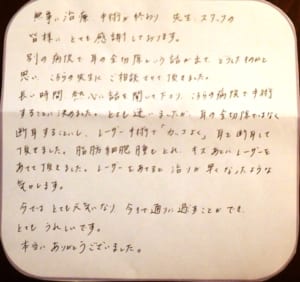 無事に治療、手術が終わり 先生、スタッフの
皆様に とても感謝しております。
別の病院で 耳の全切除という話が出て どうしたものかと
思い、こちらの先生に ご相談させて頂きました。
長い時間 熱心に話を聞いて下さり、こちらの病院で手術
することに決めました。とても迷いましたが、耳の全切除ではなく
断耳することにし、レーザー手術で「かっこよく」耳を断耳して
頂きました。脂肪細胞腫もとれ、キズあとにレーザーを
あてて頂きました。レーザーをあてると 治りが早くなったような
気がします。
今では とても元気になり 今まで通りに過すことができ、
とても うれしいです。
本当に ありがとうございました。